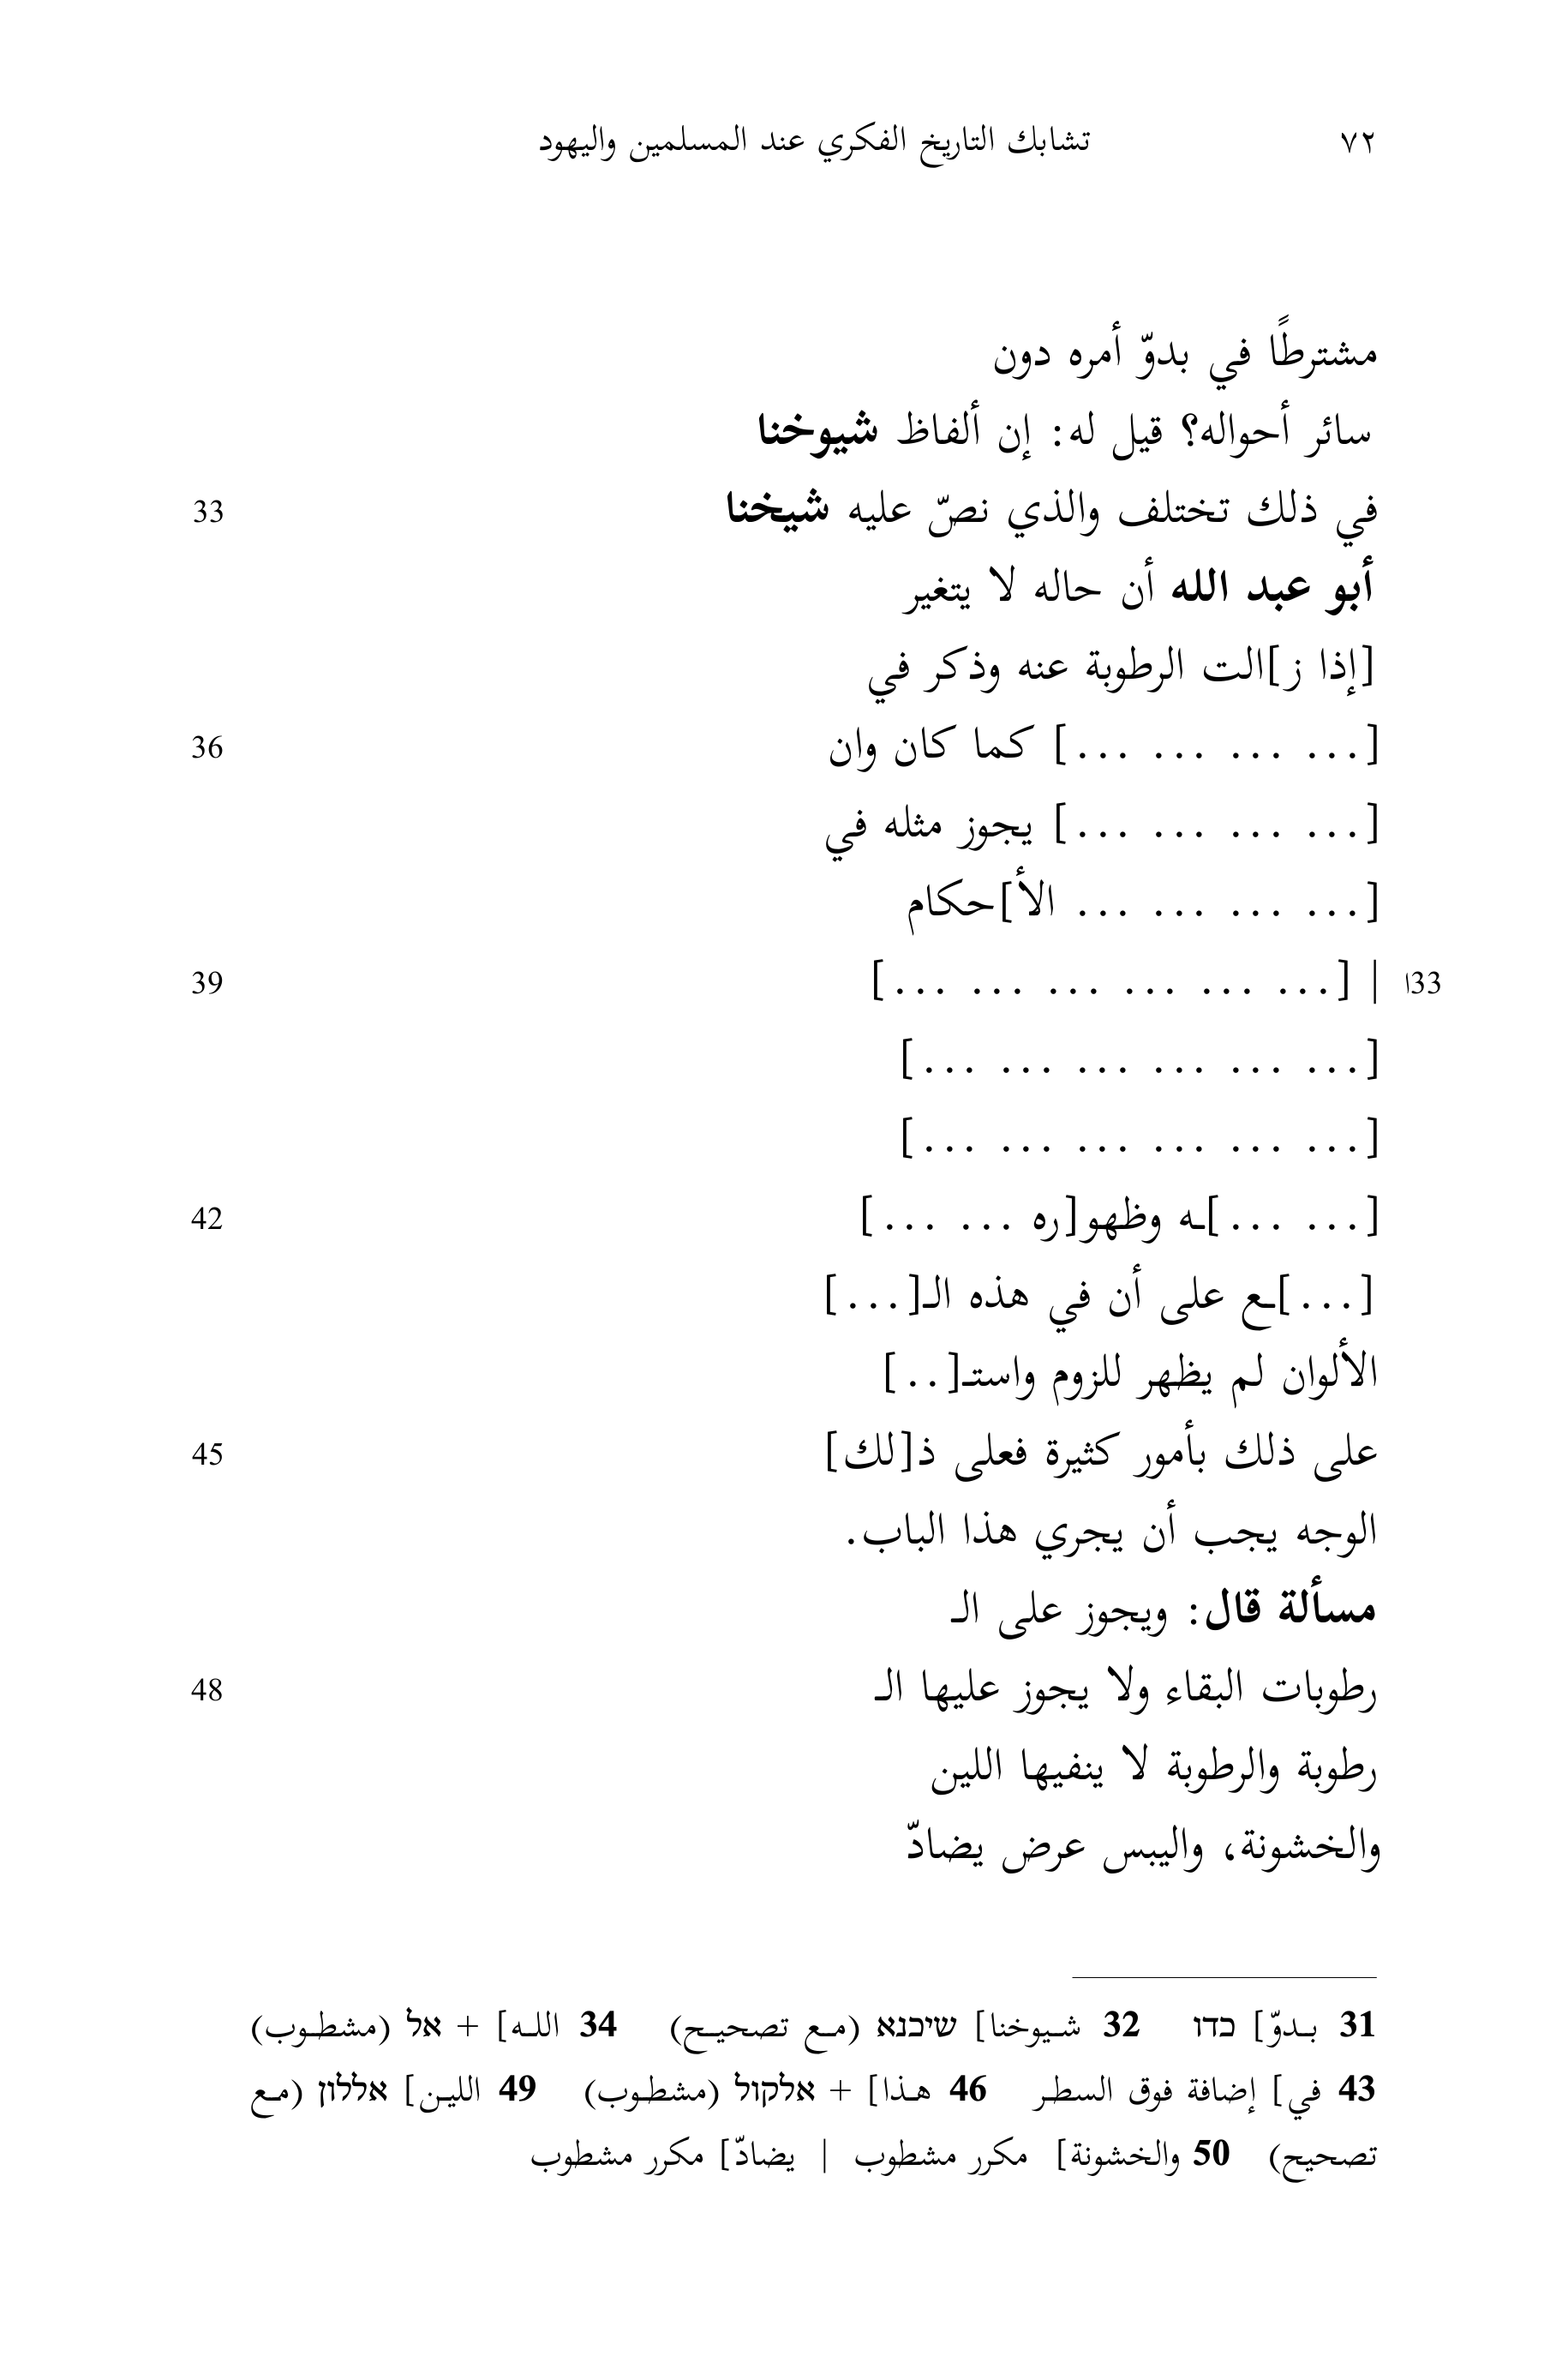 ٧٢ تشابك التاريخ الفكري عند المسلمين واليهود
مشترطًا في بدوّ أمره دون
سائر أحواله؟ قيل له: إن ألفاظ شيوخنا
في ذلك تختلف والذي نصّ عليه شيخنا 33
أبو عبد الله أن حاله لا يتغير
[إذا ز]الت الرطوبة عنه وذكر في
[... ... ... ...] كما كان وان 36
[... ... ... ...] يجوز مثله في
[... ... ... ... الأ]حكام
33ا | [... ... ... ... ... ...] 39
[... ... ... ... ... ...]
[... ... ... ... ... ...]
[... ...]ـه وظهو[ره ... ...] 42
[...]ـع على أن في هذه الـ[...]
الألوان لم يظهر للزوم واستـ[..]
على ذلك بأمور كثيرة فعلى ذ[لك] 45
الوجه يجب أن يجري هذا الباب.
مسألة قال: ويجوز على الـ
رطوبات البقاء ولا يجوز عليها الـ 48
رطوبة والرطوبة لا ينفيها اللين
والخشونة، واليبس عرض يضادّ
31 بـدوّ] כדו 32 شـيوخنا] שיכנא (مـع تصحيـح) 34 اللـه] + אל (مشطـوب)
43 في] إضافة فوق السطـر 46 هـذا] + אלקול (مشطـوب) 49 الليـن] אללון (مـع
تصحيح) 50 والخشونة] مكرر مشطوب | يضادّ] مكرر مشطوب